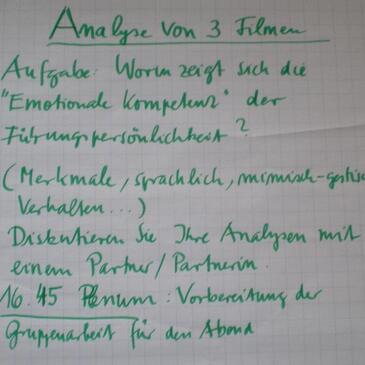 Analyse von 3 Filmen
Aufgabe: Worin zeigt sich die
"Emotionale Kompetenz" der
Führungspersönlichkeit?
(Merkmale, sprachlich, mimisch-gestisch
Verhalten...)
Diskutieren Sie Ihre Analysen mit
einem Partner/Partnerin.
16.45 Plenum: Vorbereitung der
Gruppenarbeit für den Abend